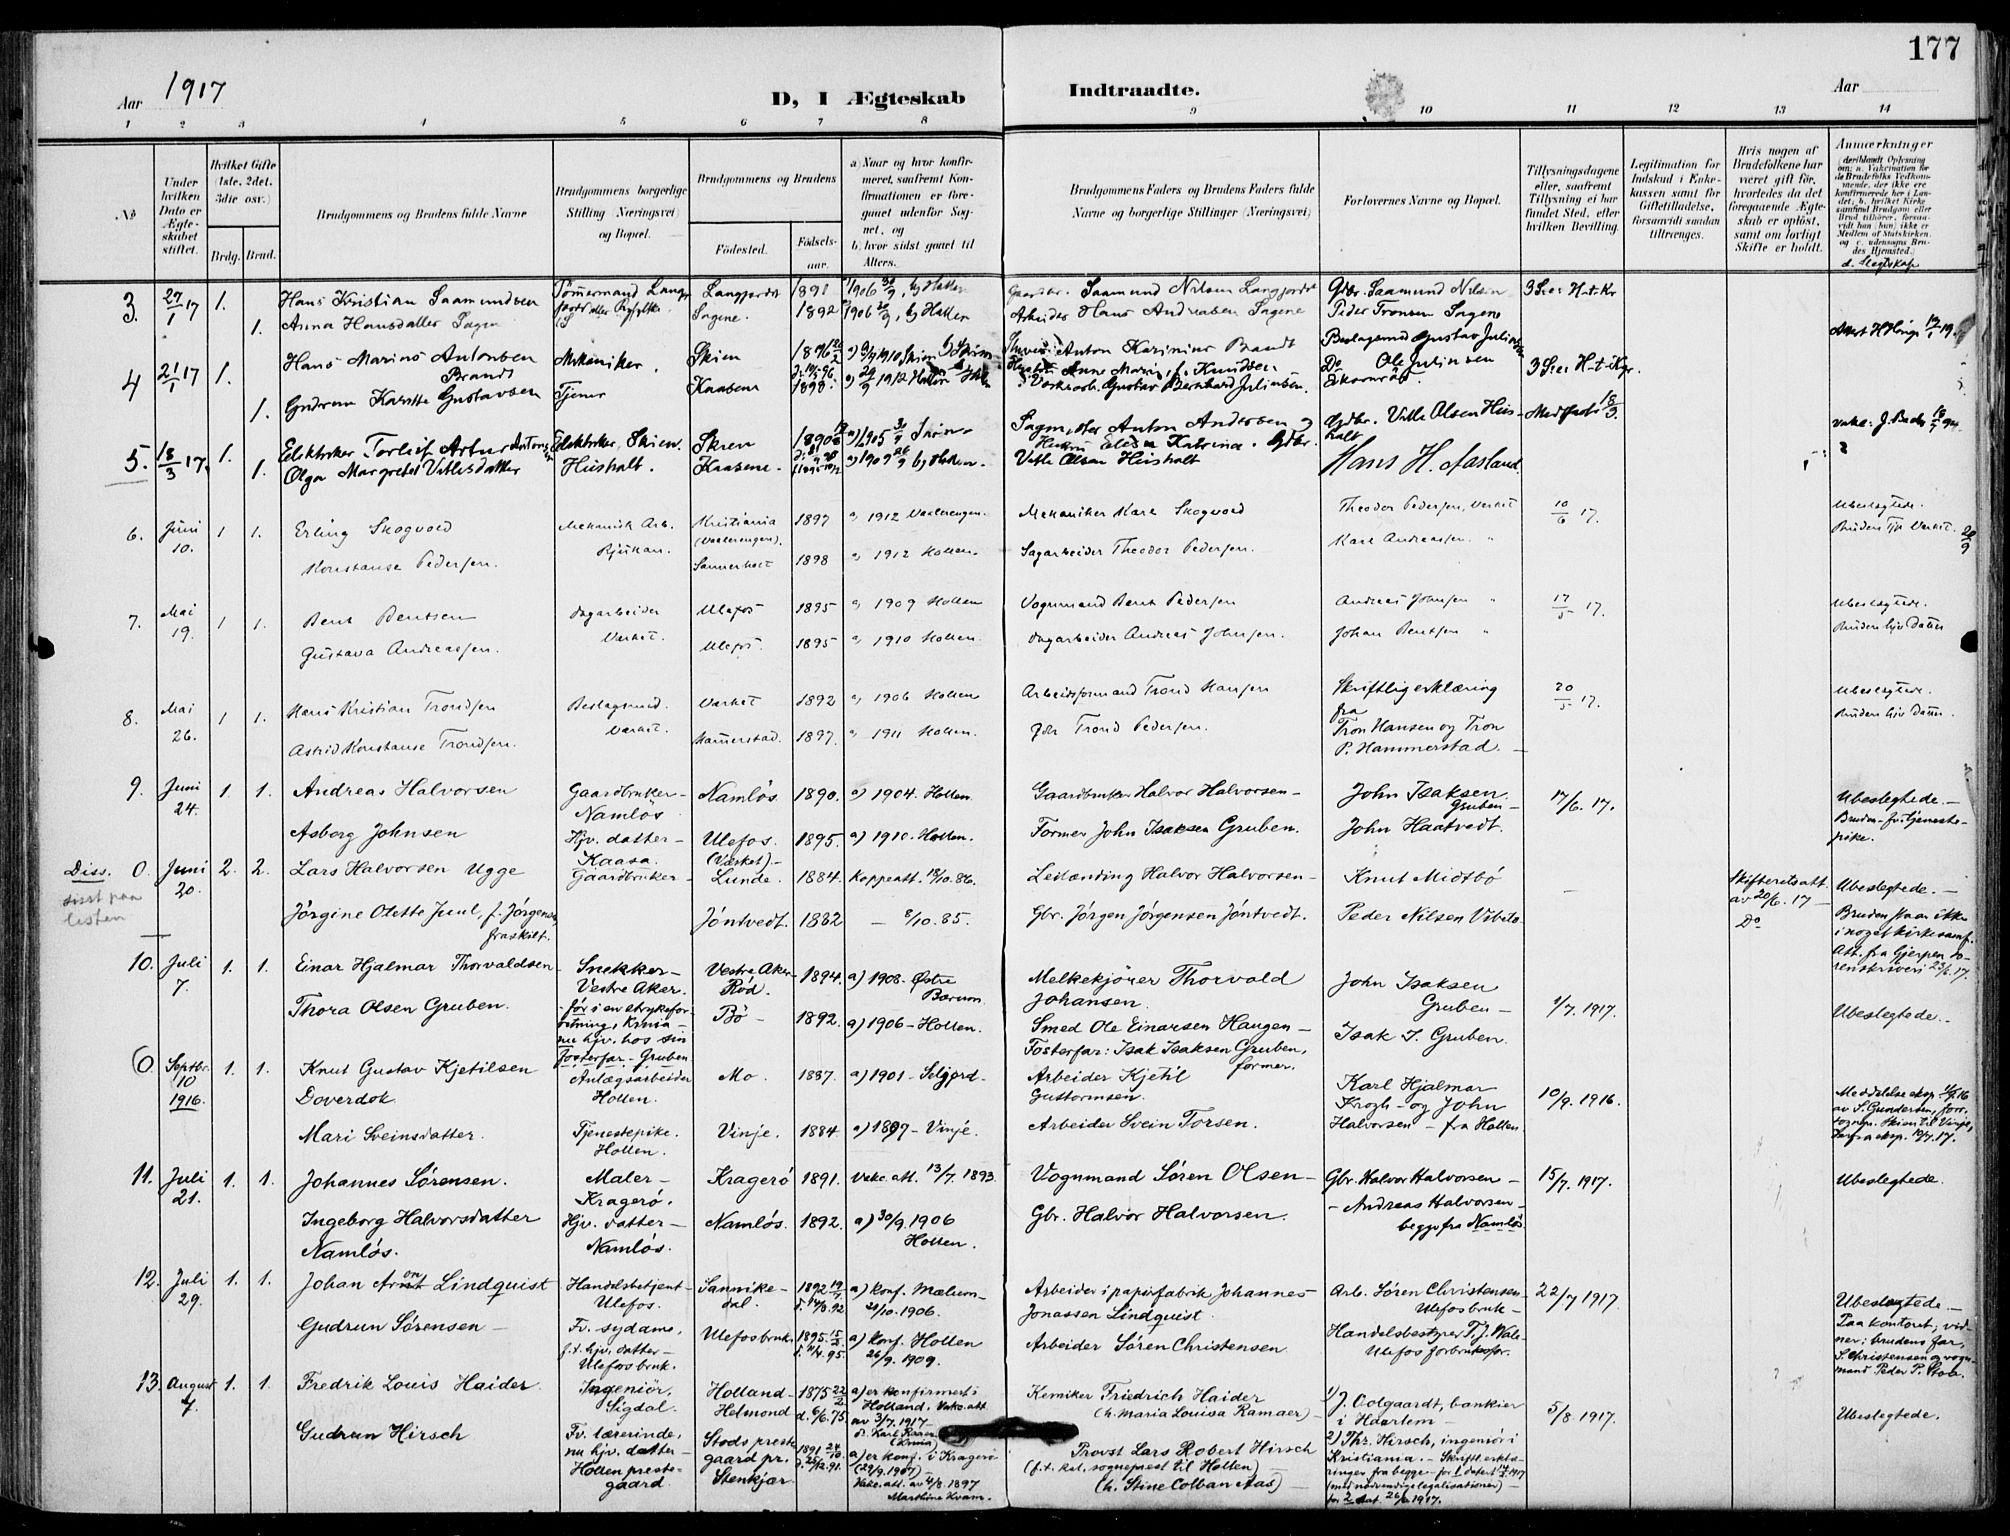 177
Aar 1917
D, I Ægteskab Indtraadte.
Aar
1 2 3 4 5 6 7 8 9 10 11 12 13 14
No
Under hvilken Dato er Ægteskabet stiftet.
Hvilket Gifte (1ste, 2det, 3die osv.)
Brdg. Brud.
Brudgommens og Brudens fulde Navne
Brudgommens borgerlige Stilling (Næringsvei) og Bopæl.
Brudgommens og Brudens
Fødested.
Fødselsaar.
a) Naar og hvor konfirmeret, saafremt Konfirmationen er foregaaet udenfor Sognet, og
b) hvor sidst gaaet til Alters.
Brudgommens Faders og Brudens Faders fulde Navne og borgerlige Stillinger (Næringsvei)
Forlovernes Navne og Bopæl.
Tillysningsdagene eller, saafremt Tillysning ei har fundet Sted, efter hvilken Bevilling.
Legitimation for Indskud i Enkekassen samt for Giftetilladelse, forsaavidt saadan tiltrænges.
Hvis nogen af Brudefolkene har været gift før, hvorledes da det foregaaende Ægteskab er opløst, samt om lovligt Skifte er holdt.
Anmærkninger
d. Slegtskap
3. 27/1 17 1. Hans Kristian Saamundsen Langfjordt 1891 Saamund Nilsen Langfjordt Gbr. Saamund Nilsen
1. Anna Hansdatter Sagene. 1892 Arbeider Hans Andreasen Sagene Peder Tronsen Sagene
4 21/1 17 1. Hans Marinus Antonsen Brandt Mekaniker. Skien Anton Karinius Brandt Beslagsmd Gustav Juliussen
1. Gudrun Karitte Gustavsen Tjener Kaasene 1898 Gustav Bernhard Juliussen. Do Ole Juliussen
5. 18/3 17. 1. Torleif Artur Skien. Skien Anton Andersen og Gbr. Vetle Olsen Hushalt
1. Olga Margrethe Vetlesdatter Hushalt. Kaasene. Vetle Olsen Hushalt Hans H. Aasland
6. Juni 10. 1 1. Erling Skogvold Mekanisk Arb. Rjukan. Kristiania (Vaalerengen). 1897 a) 1912 Vaalerengen. Mekaniker Karl Skogvold Theodor Pedersen, Verket 10/6 17. Ubeslegtede.
Konstanse Pedersen. Sannerholt 1898 a) 1912 Holten. Sagarbeider Theodor Pedersen. Karl Andreassen "
7. Mai 19. 1 1. Bent Bentsen Dagarbeider Verket. Ulefos 1895 a) 1909 Holten Vognmand Bent Pedersen Andreas Johnsen " 17/5 17. Ubeslegtede.
Gustava Andreassen. Ulefos. 1895 a) 1910 Holten. Dagarbeider Andreas Johnsen. Johan Bentsen "
8. Mai 26. 1 1. Hans Kristian Trondsen Beslagsmd. Verket. Verket 1892 a) 1906 Holten Arbeidsformand Trond Hansen Skriftlig erklæring fra 20/5 17. Ubeslegtede.
Astrid Konstanse Trondsen. Hammerstad. 1897. a) 1911 Holten. Gbr Trond Pedersen. Tron Hansen og Tron P. Hammerstad.
9. Juni 24. 1 1. Andreas Halvorsen Gaardbruker - Namløs Namløs 1890. a) 1904. Holten. Gaardbruker Halvor Halvorsen - John Isaksen Gruben - 17/6. 17. Ubeslegtede. -
Asborg Johnsen Hjv. datter - Kaasa. Ulefos. (Verket). - 1895. a) 1910. Holten. Former John Isaksen Gruben. John Haatvedt. Bruden - fv. tjenestepike.
Diss. sisst paa listen 0. Juni 20. 2. 2. Lars Halvorsen Ugge Gaardbruker - Lunde. 1884. Koppeatt. 18/10. 86. Leilænding Halvor Halvorsen - Knut Midtbø - Skifteretsatt. av 20/6. 17 - Ubeslegtede. -
Jørgine Olette Juul, f. Jørgensen, fraskilt. Jøntvedt. 1882 - 8/10. 85. Gbr. Jørgen Jørgensen Jøntvedt. Peder Nilsen Vibeto Do Bruden staar ikke i noget kirkesamf.
10. Juli 7. 1. 1. Einar Hjalmar Thorvaldsen - Snekker - Vestre Aker. Vestre Aker - Röd. 1894. a) 1908. Østre Bærum. Melkekjører Thorvald Johansen. John Isaksen Gruben - 1/7. 1917. Att. fra Gjerpen sorenskriveri 23/6. 17.
Thora Olsen Gruben. - før i en strykeforretning, Krnia - nu hjv. hos sin fosterfar - Gruben Bø - 1892. a) 1906 - Holten. Smed Ole Einarsen Haugen - Fosterfar: Isak Isaksen Gruben, former. Isak I. Gruben. Ubeslegtede. -
0. Septbr. 10 1916. 1. 1. Knut Gustav Kjetilsen Doverdok. Anlægsarbeider Holten. Mo. 1887. a) 1901 - Seljord - Arbeider Kjetil Guttormsen. Karl Hjalmar Krogh - og John Halvorsen - fra Holten 10/9. 1916.
Mari Sveinsdatter. Tjenestepike. Holten. Vinje. 1884. a) 1897 - Vinje. Arbeider Svein Torsen.
11. Juli 21. 1. 1. Johannes Sørensen. Maler - Kragerø. Kragerø 1891. Vakc. att. 13/7. 1893. Vognmand Søren Olsen - Gbr. Halvor Halvorsen - 15/7. 1917. Ubeslegtede.
Ingeborg Halvorsdatter Namløs. Hjv. datter - Namløs. Namløs. 1892. a) 30/9. 1906 Holten. Gbr. Halvor Halvorsen. - Andreas Halvorsen - begge fra Namløs
12. Juli 29. 1. 1. Johan Aront Lindquist Handelsbetjent - Ulefos. Sannikedal. 1892 a) Konf. Mælum - 21/10. 1906. Arbeider i papirfabrik Johannes Jonassen Lindquist. Arb. Søren Christensen - Ulefosbruk - 22/7 1917. Ubeslegtede -
Gudrun Sørensen - Fv. sydame, f.t. hjv. datter - Ulefosbruk. Ulefosbruk. 1895 a) Konf. Holten 26/9. 1909. Arbeider Søren Christensen. Handelsbestyrer Ulefos forbruksfor. Paa kontoret; vidner: brudens far, S. Christensen og vognmand Peder P. Stoa.
13. August 7. 1. 1. Fredrik Louis Haider. Ingeniør, Sigdal. Holland - Helmond 1875 22/2 d. 6/6. 75. a) er konfirmert i Holland. Vakc. att. av 3/7. 1917 - Kemiker Friedrich Haider (h. Maria Louisa Ramaer) - 1) J. Oolgaardt, bankier i Haarlem - 5/8. 1917. Ubeslegtede.
Gudrun Hirsch Fv. lærerinde, nu hjv. datter - Holten prestegaard. Stods prestegaard pr. Stenkjær. 1891 a) er konf. i Kragerø (29/9. 1907) - Vakc. att. av 4/8. 1897 Marthine Kvam. Provst Lars Robert Hirsch (f.t. kst. sogneprest til Holten) (h. Stine Colban Aas) - 2) Thr. Hirsch, ingeniør i Kristiania. - Skriftl. erklæringer fra begge - (med nødvendige legalisationer) -